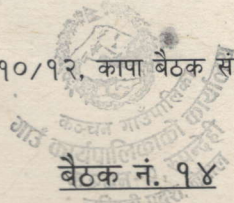 १०/१२, कापा बैठक सं
कञ्चन गाउँपालिका
गाउँ कार्यपालिकाको कार्यालय
बैठक नं. १४